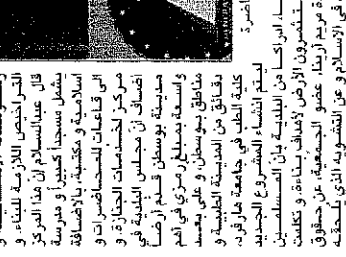 التراخيص اللازمة للبناء. و
قال عبدالسلام إن هذا المركز
يشمل مسجداً كبيراً و مدرسة
اسلامية و مكتبة، بالاضافة
الى قاعات للمحاضرات و
مركز لخدمات الجنازة. و
اضاف أن مجلس البلدية في
مدينة بوسطن قدم أرضاً
واسعة بمبلغ رمزي في أهم
مناطق بوسطن و على بعد
دقائق من المدينة الطبية و
كلية الطب في جامعة هارفرد.
ليتم انشاء المشروع الجديد
من البلدية بأن المسلمين
يستثمرون الأرض لأهداف بناءة. و تكلمت
مريم أرينا، عضو الجمعية، عن حقوق
في الاسلام و عن التشويه الذي يلحقه